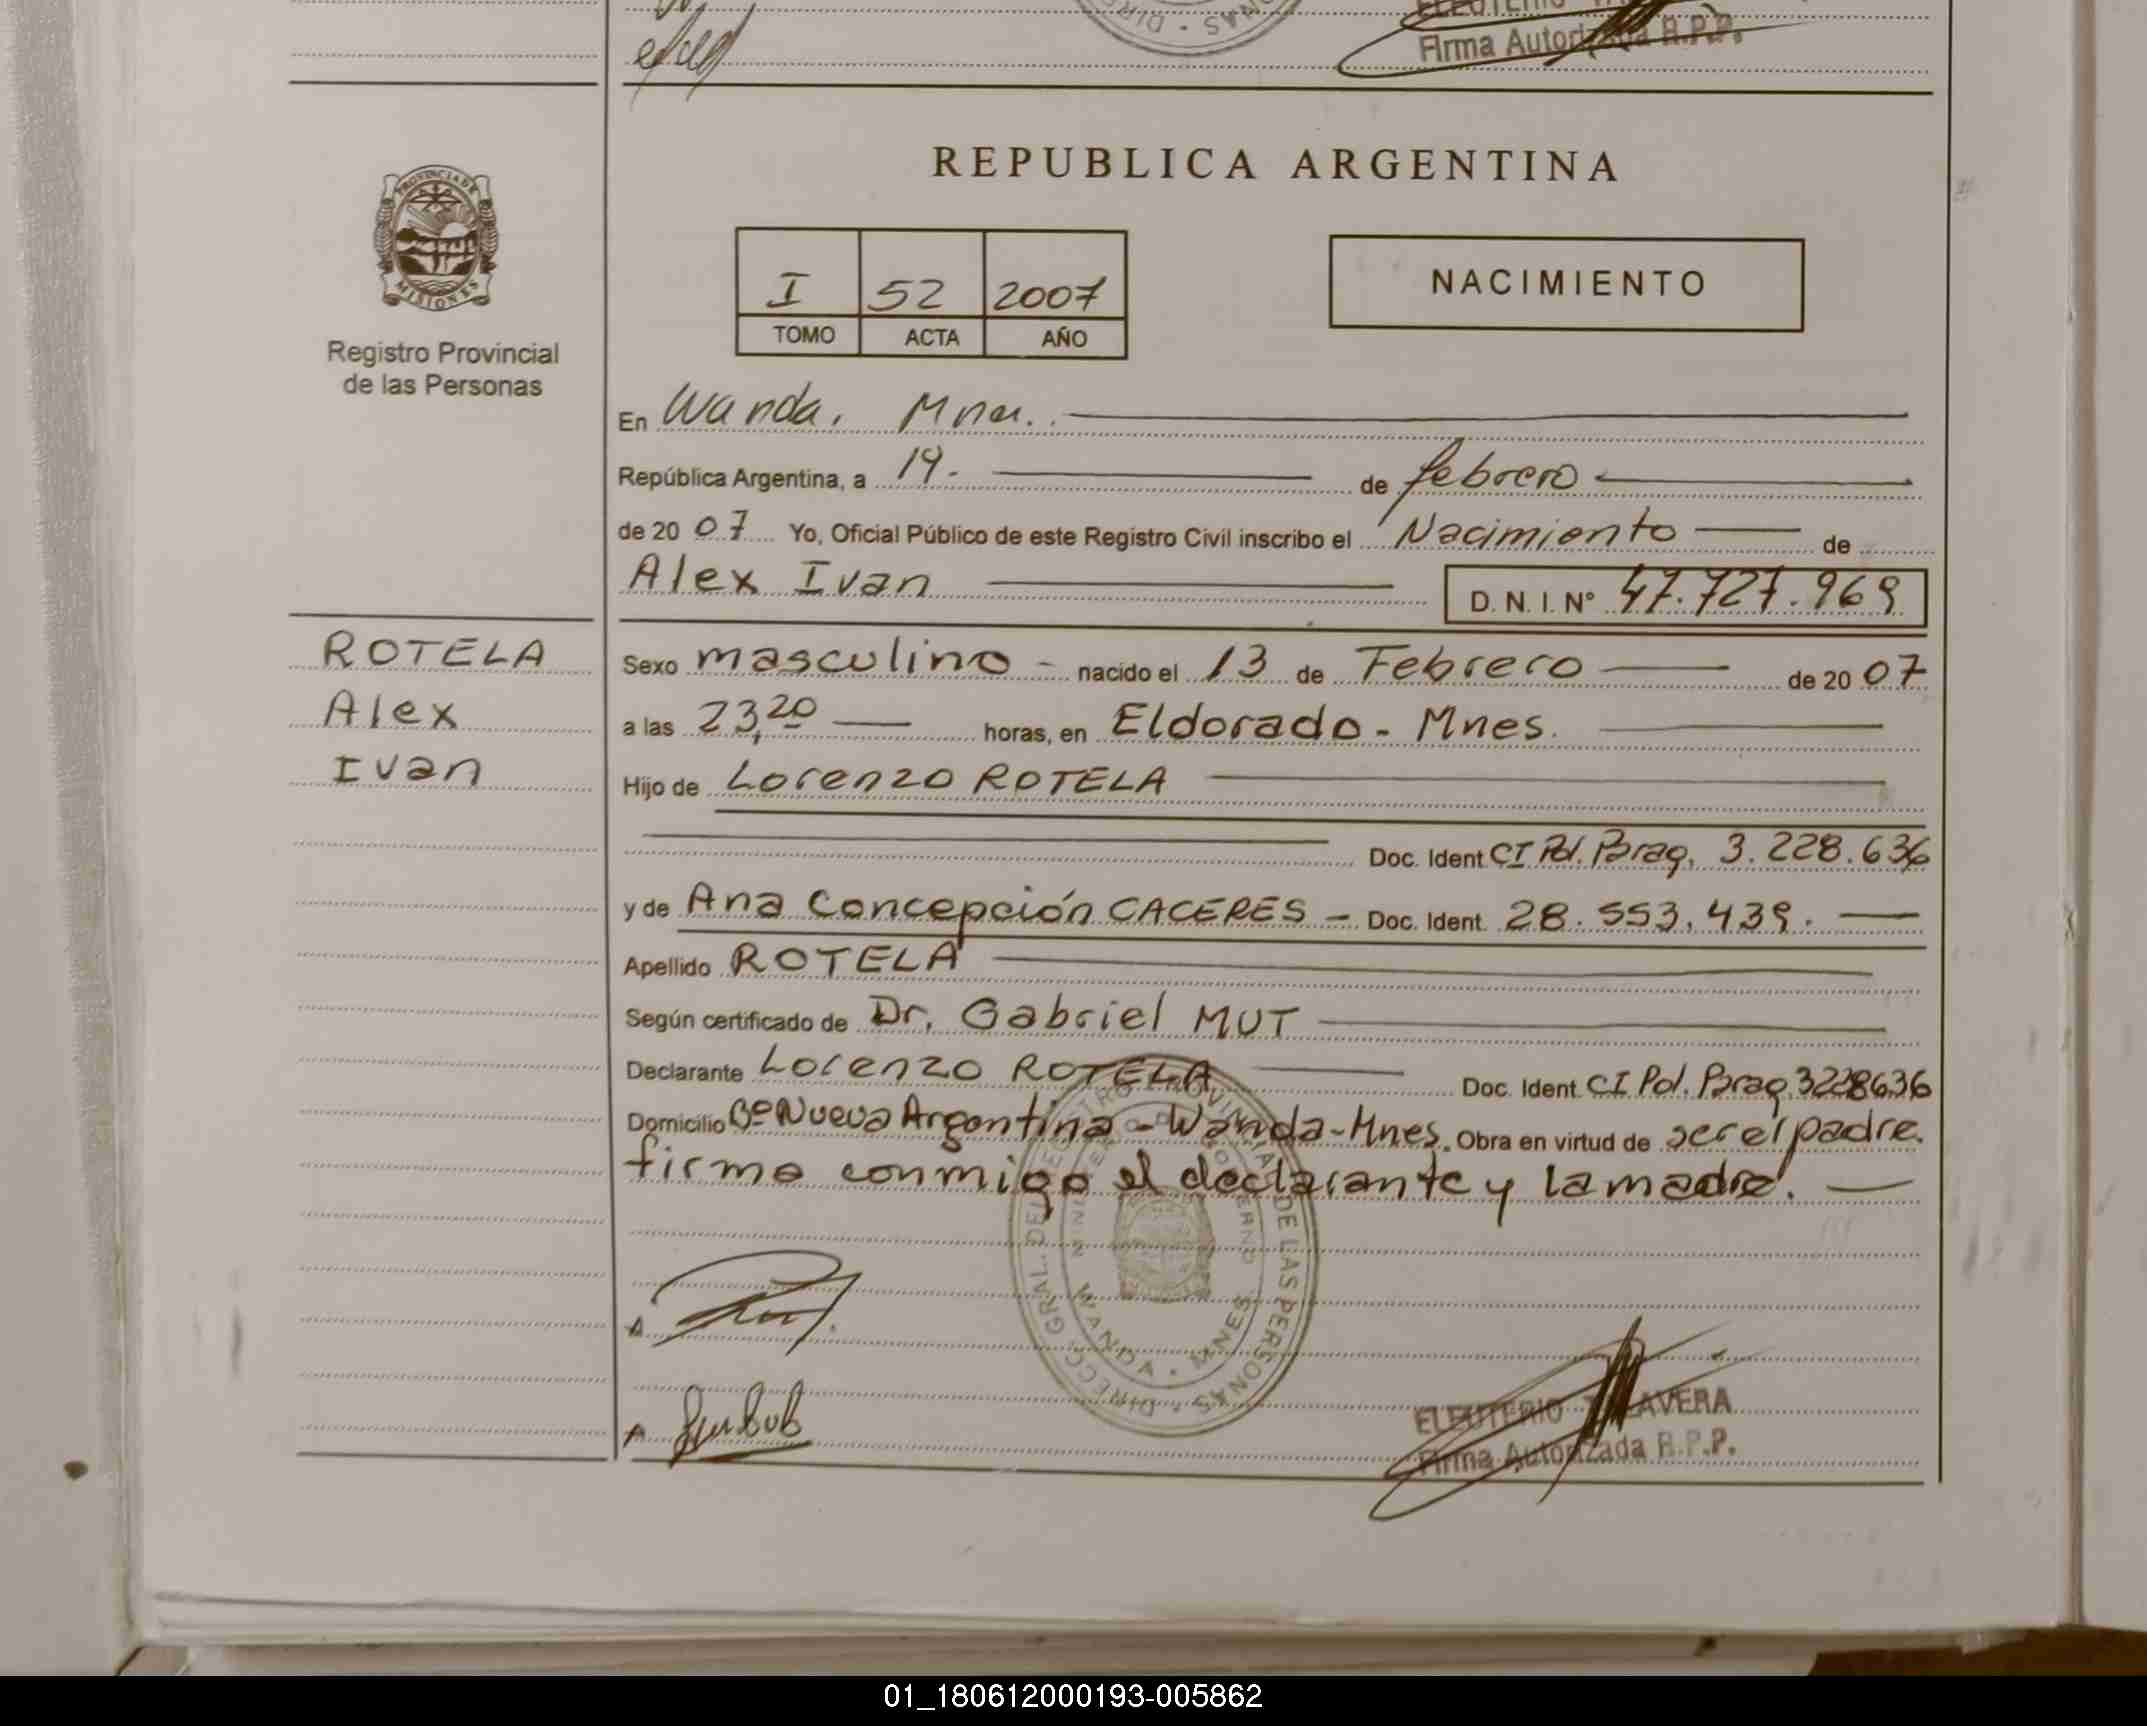 Firma Autorizada R.P.P.
REPUBLICA ARGENTINA
PROVINCIA DE
MISIONES
Registro Provincial
de las Personas
I 52 2007
TOMO ACTA AÑO
NACIMIENTO
En Wanda, Mnes.
República Argentina, a 19. de febrero
de 20 07 Yo, Oficial Público de este Registro Civil inscribo el Nacimiento de
Alex Ivan D.N.I.N° 47.727.969
ROTELA
Alex
Ivan
Sexo masculino - nacido el 13 de Febrero de 20 07
a las 23,20 horas, en Eldorado - Mnes.
Hijo de Lorenzo ROTELA
Doc. Ident. CI Pol. Parag. 3.228.636
y de Ana Concepción CACERES - Doc. Ident. 28.553.439.
Apellido ROTELA
Según certificado de Dr. Gabriel MUT
Declarante Lorenzo ROTELA Doc. Ident. CI Pol. Parag. 3228636
Domicilio Bº Nueva Argentina - Wanda - Mnes. Obra en virtud de ser el padre.
firma conmigo el declarante y la madre.
DIRECC. GRAL. DEL REGISTRO PROVINCIAL DE LAS PERSONAS
MINISTERIO DE GOBIERNO
WANDA - MNES.
ELEUTERIO TALAVERA
Firma Autorizada R.P.P.
01_180612000193-005862